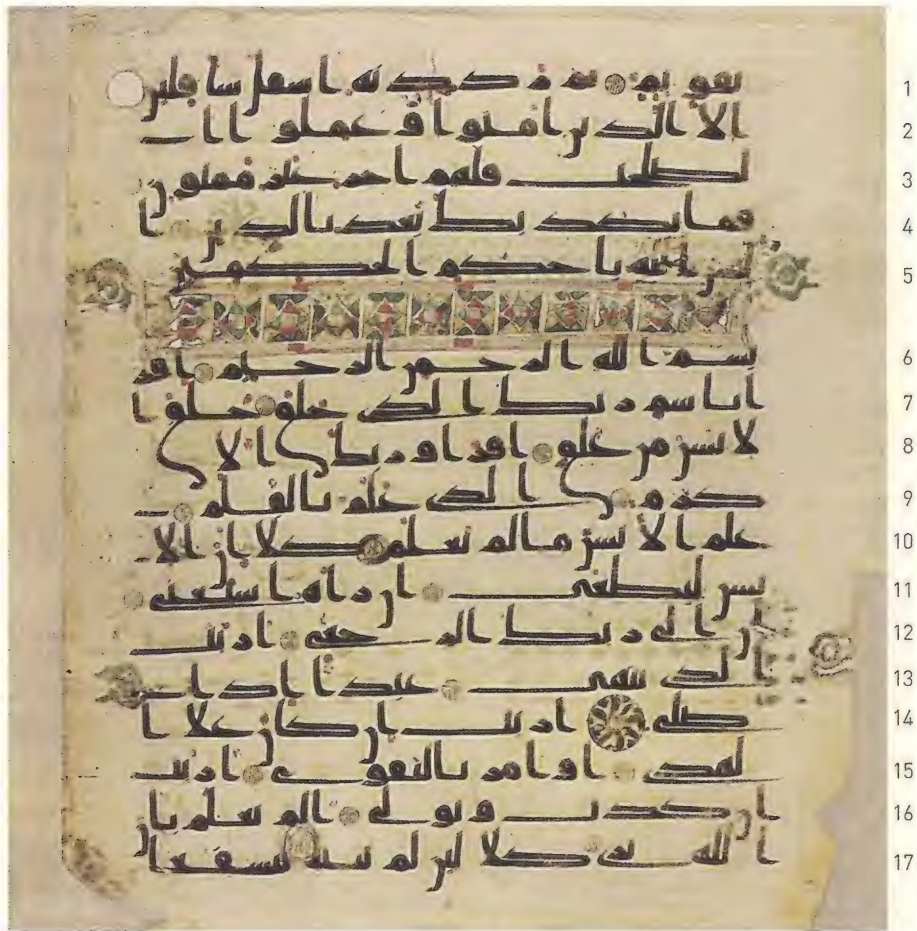 1 تقويم ثم رددنه اسفل سافلين
2 الا الذين امنوا و عملوا ا
3 لصلحت فلهم اجر غير ممنون
4 فما يكذبك بعد بالدين ا
5 ليس الله باحكم الحكمين
6 بسم الله الرحمن الرحيم اقر
7 ا باسم ربك الذي خلق خلق ا
8 لانسن من علق اقرا وربك الا
9 كرم الذي علم بالقلم
10 علم الانسن ما لم يعلم كلا ان الا
11 نسن ليطغى ان راه استغنى
12 ان الى ربك الرجعى اريت
13 الذي ينهى عبدا اذا
14 صلى اريت ان كان على ا
15 لهدى او امر بالتقوى اريت
16 ان كذب وتولى الم يعلم بان
17 الله يرى كلا لئن لم ينته لنسفعا